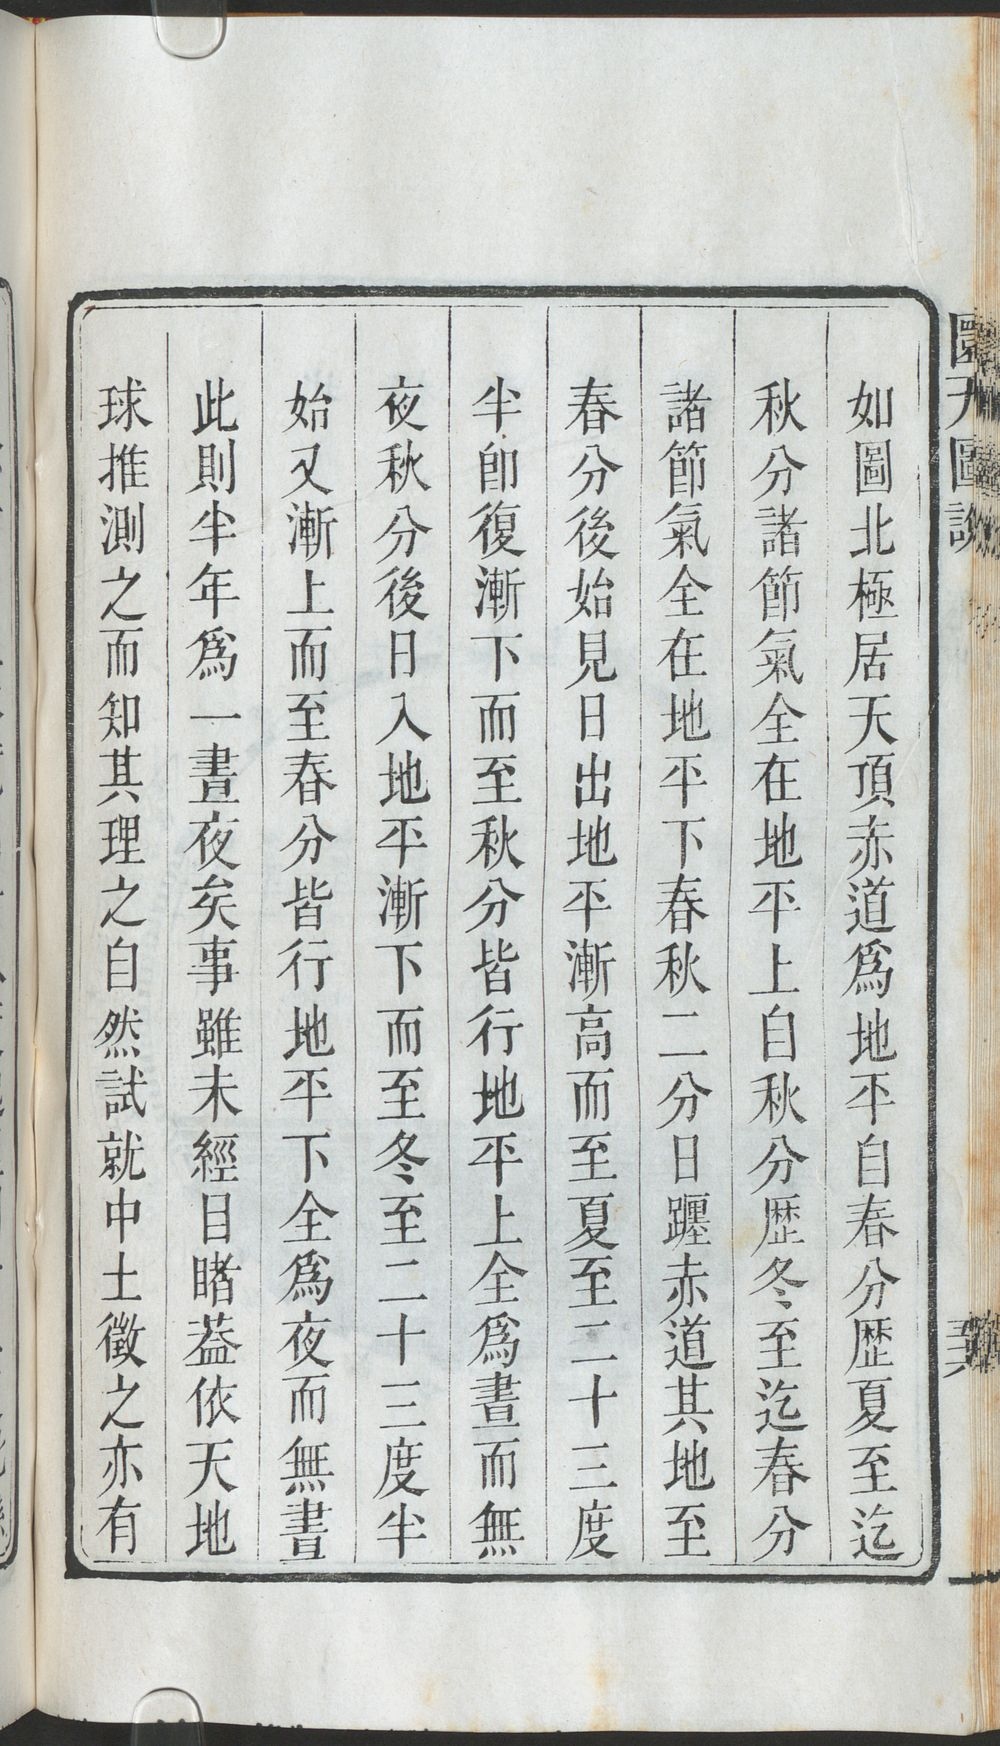 如圖北極居天頂赤道爲地平自春分歴夏至迄
秋分諸節氣全在地平上自秋分歴冬至迄春分
諸節氣全在地平下春秋二分日躔赤道其地至
春分後始見日出地平漸高而至夏至二十三度
半卽復漸下而至秋分皆行地平上全爲晝而無
夜秋分後日入地平漸下而至冬至二十三度半
始又漸上而至春分皆行地平下全爲夜而無晝
此則半年爲一晝夜矣事雖未經目睹葢依天地
球推測之而知其理之自然試就中土徵之亦有
圜天圖說